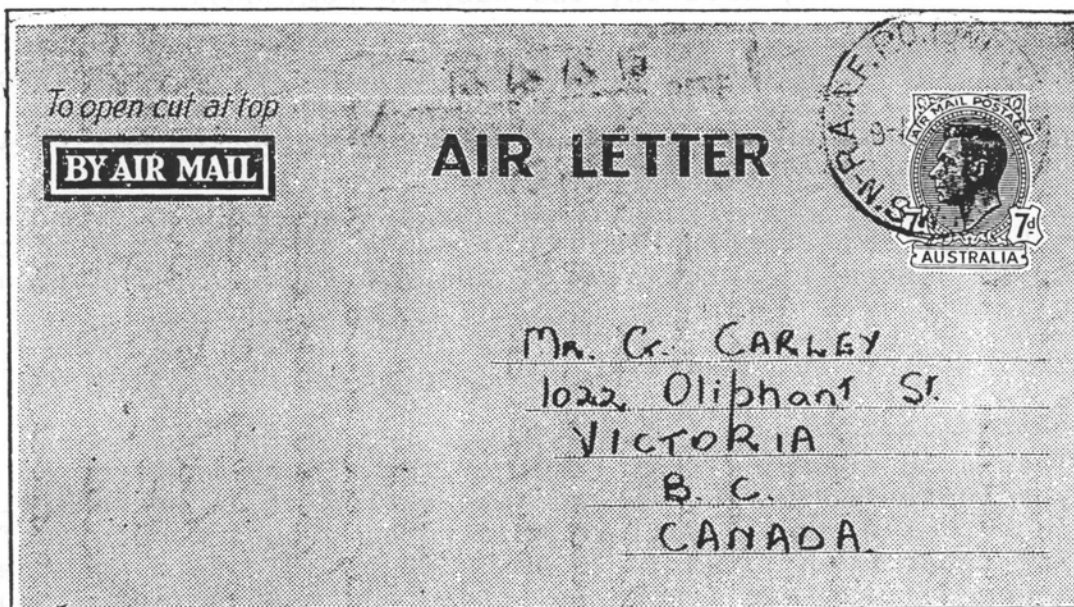 To open cut at top
BY AIR MAIL
AIR LETTER
R.A.A.F. P.O.
N.S.W
9-
AIR MAIL POSTAGE
7d 7d
AUSTRALIA
Mr. G. CARLEY
1022 Oliphant St.
VICTORIA
B. C.
CANADA.